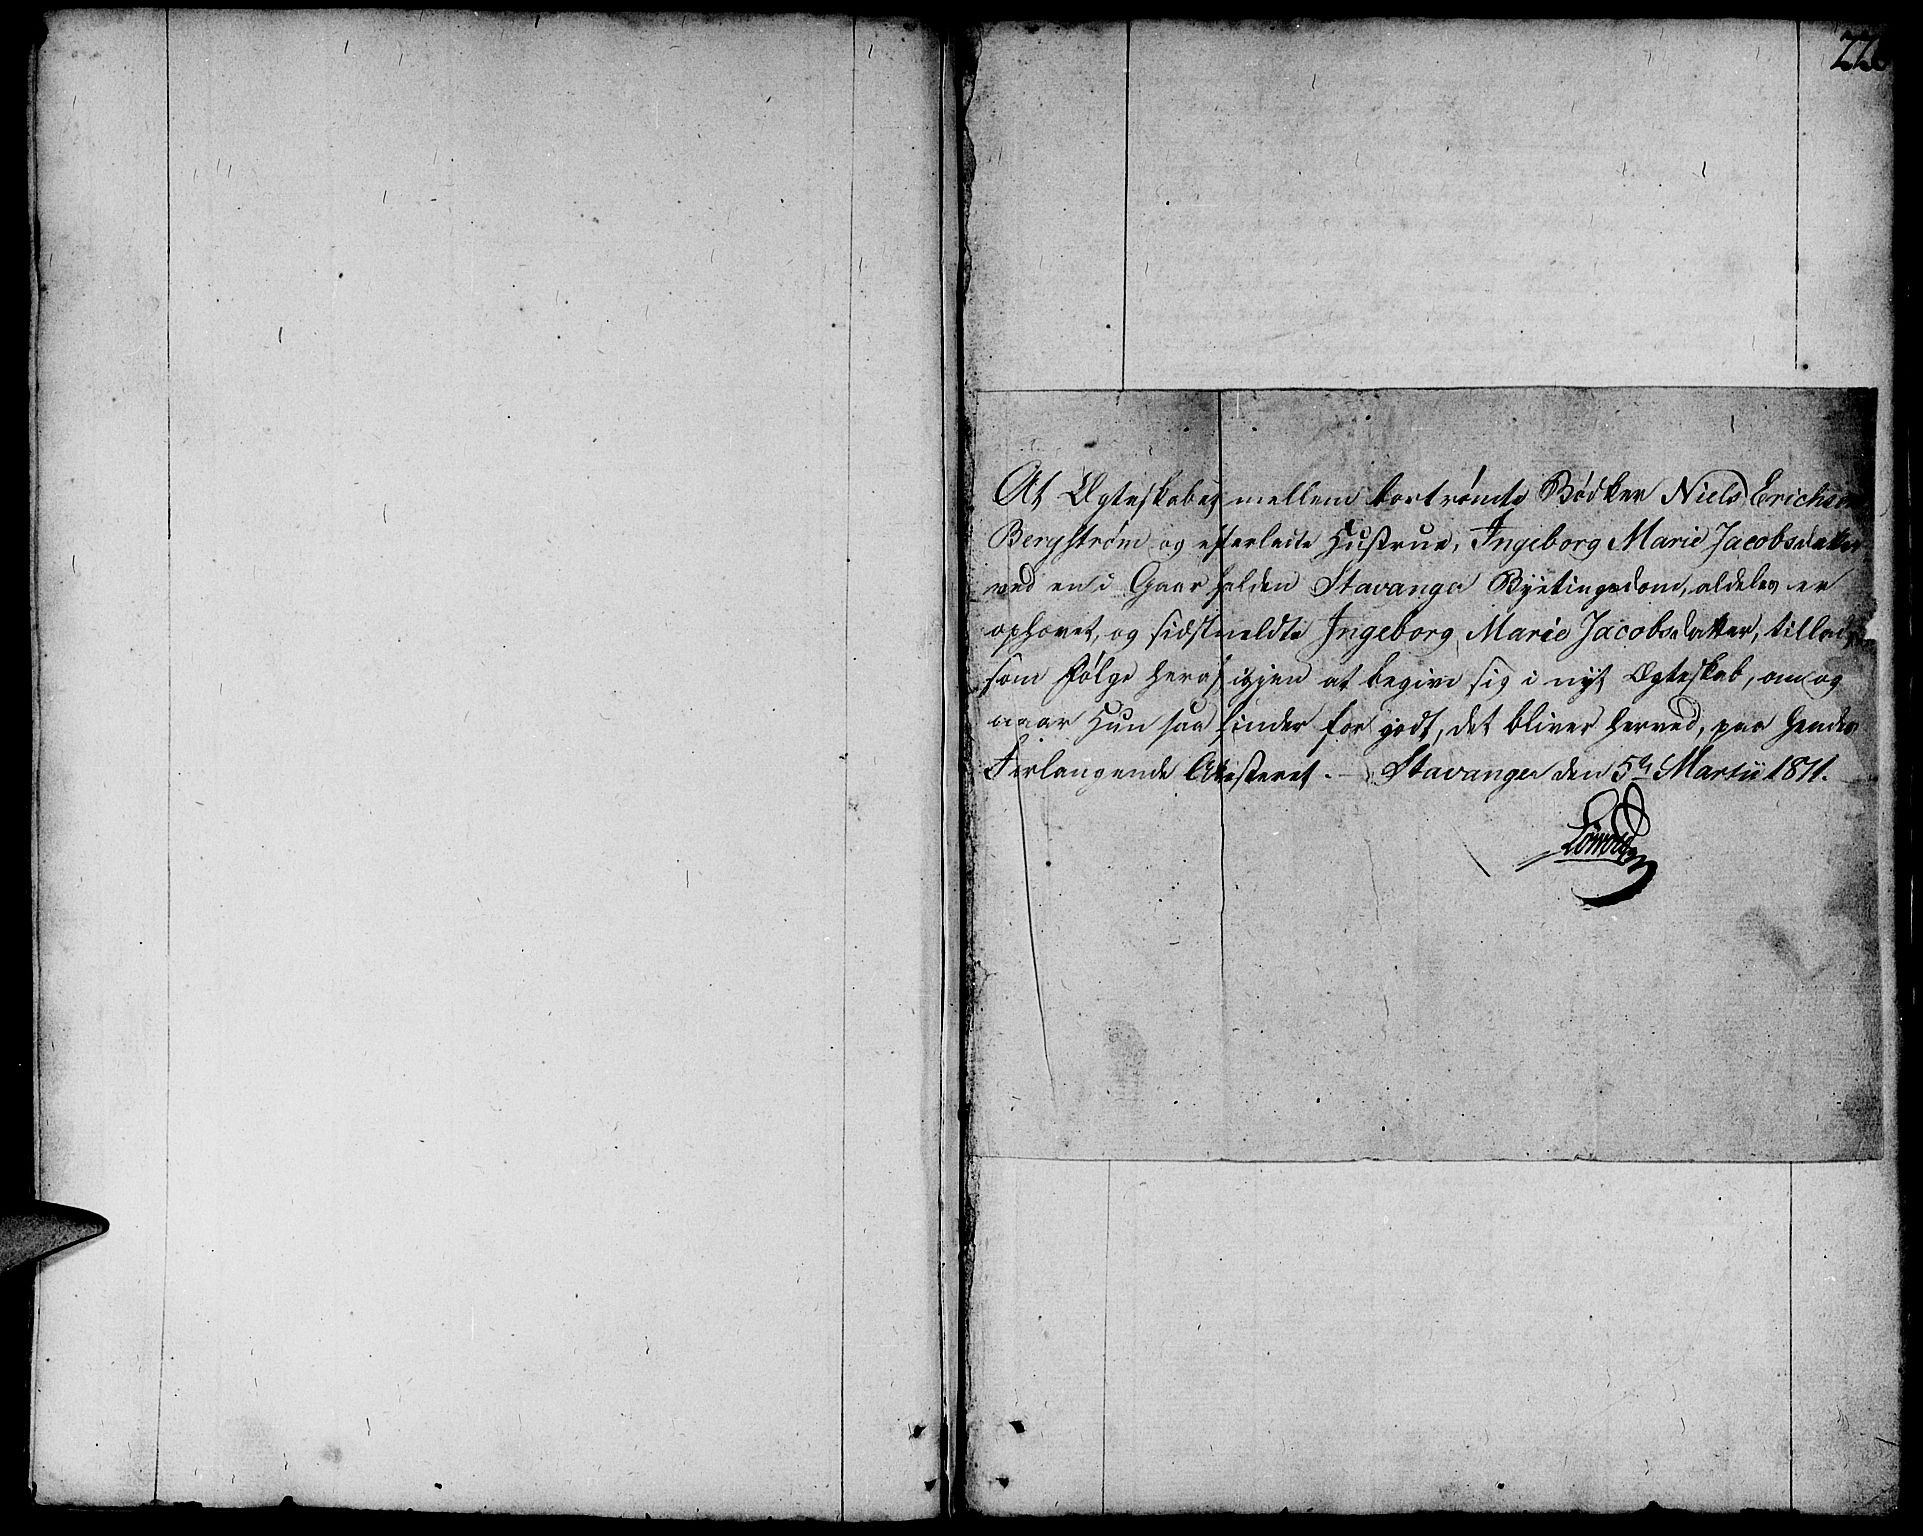 22
At Ægteskabet mellem bortrømte Bødker Niels Erichsen
Bergstrøm og efterladte Hustrue, Ingeborg Marie Jacobsdatter
ved en i Gaar falden Stavanger Byetingsdom, aldeles er
ophævet, og sidstmeldte Ingeborg Marie Jacobsdatter, tillades
som Følge heraf igjen at begive sig i nyt Ægteskab, om og
naar Hun saa finder for godt, det bliver herved, paa hendes
Forlangende Attesteret. — Stavanger den 5te Martii 1811.